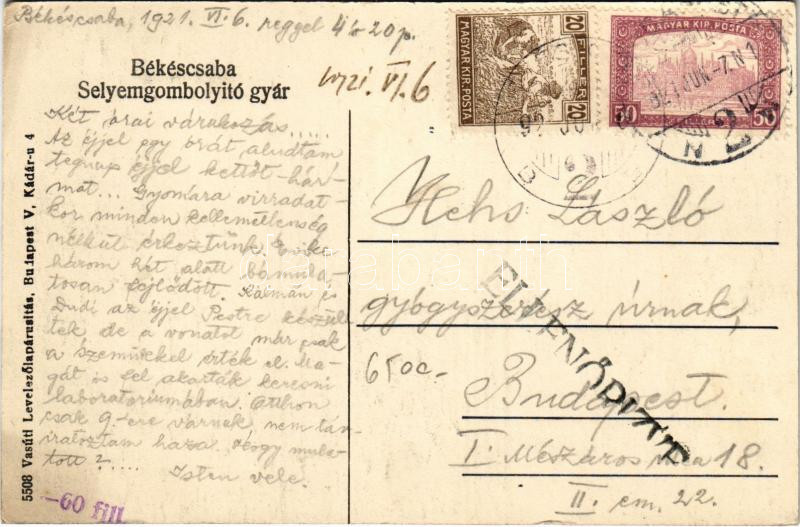 Békéscsaba, 1921. VI. 6. reggel 4 ó 20 p.
Békéscsaba
Selyemgombolyitó gyár
VI. 6
Két órai várakozás.....
Az éjjel egy órát aludtam
tegnap éjjel kettőt-hár-
mat... Gyomára virradat-
kor minden kellemetlenség
nélkül érkeztünk.
három hét alatt bámula-
tosan fejlődött. Kálmán és
Dudi az éjjel Pestre készül-
tek de a vonatot már csak
a szemükkel érték el. Ma-
gát is fel akarták keresni
laboratoriumában. Otthon
csak 9.-ére várnak, nem táv-
iratoztam haza. Hogy mula-
tott?.....
Isten vele.
5508 Vasúti Levelezőlapárusítás, Budapest V, Kádár-u 4
-60 fill.
20 FILLÉR 20
MAGYAR KIR. POSTA
MAGYAR KIR. POSTA
50 FILLÉR 50
921 JUN.-7.N1
Hehs László
gyógyszerész úrnak,
ELLENŐRIZVE
6500-
Budapest.
I. Mészáros utca 18.
II. em. 22.